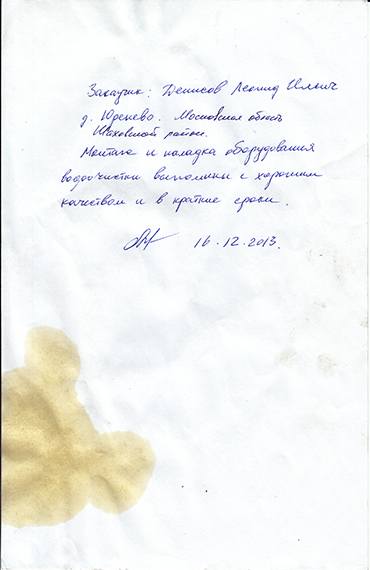 Заказчик: Денисов Леонид Ильич
д. Юренево. Московская область
Шаховской район.
Монтаж и наладка оборудования
водоочистки выполнены с хорошим
качеством и в краткие сроки.
16.12.2013.